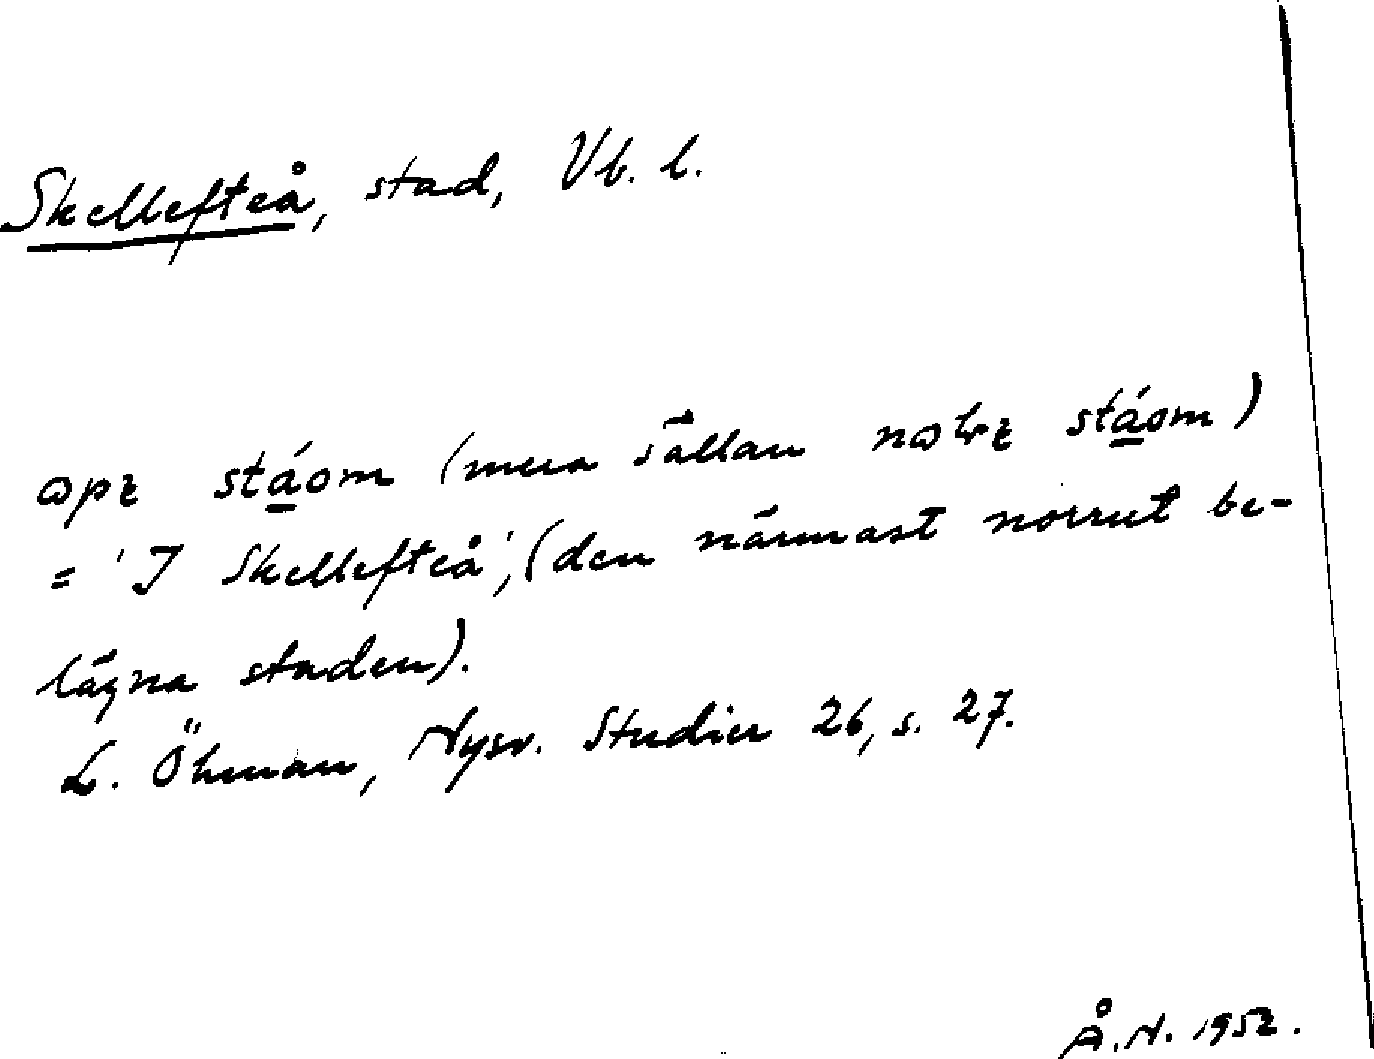 Skellefteå, stad, Vb. l.
opɛ stá̱om (mera sällan nolɛ stá̱om)
= 'I Skellefteå', (den närmast norrut be-
lägna staden).
L. Öhman, Nysv. Studier 26, s. 27.
Å. N. 1952.